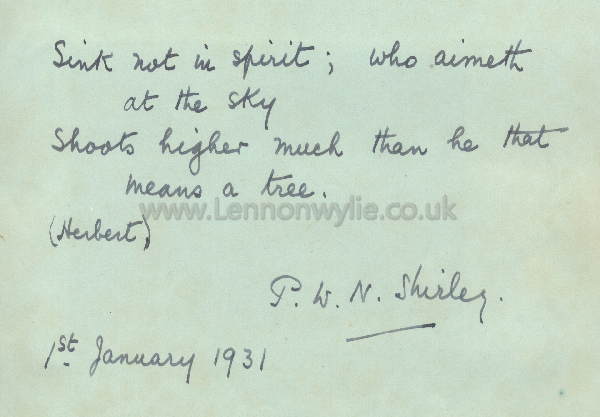 Sink not in spirit; who aimeth
at the sky
Shoots higher much than he that
means a tree.
www.Lennonwylie.co.uk
(Herbert)
P. W. N. Shirley.
1st January 1931